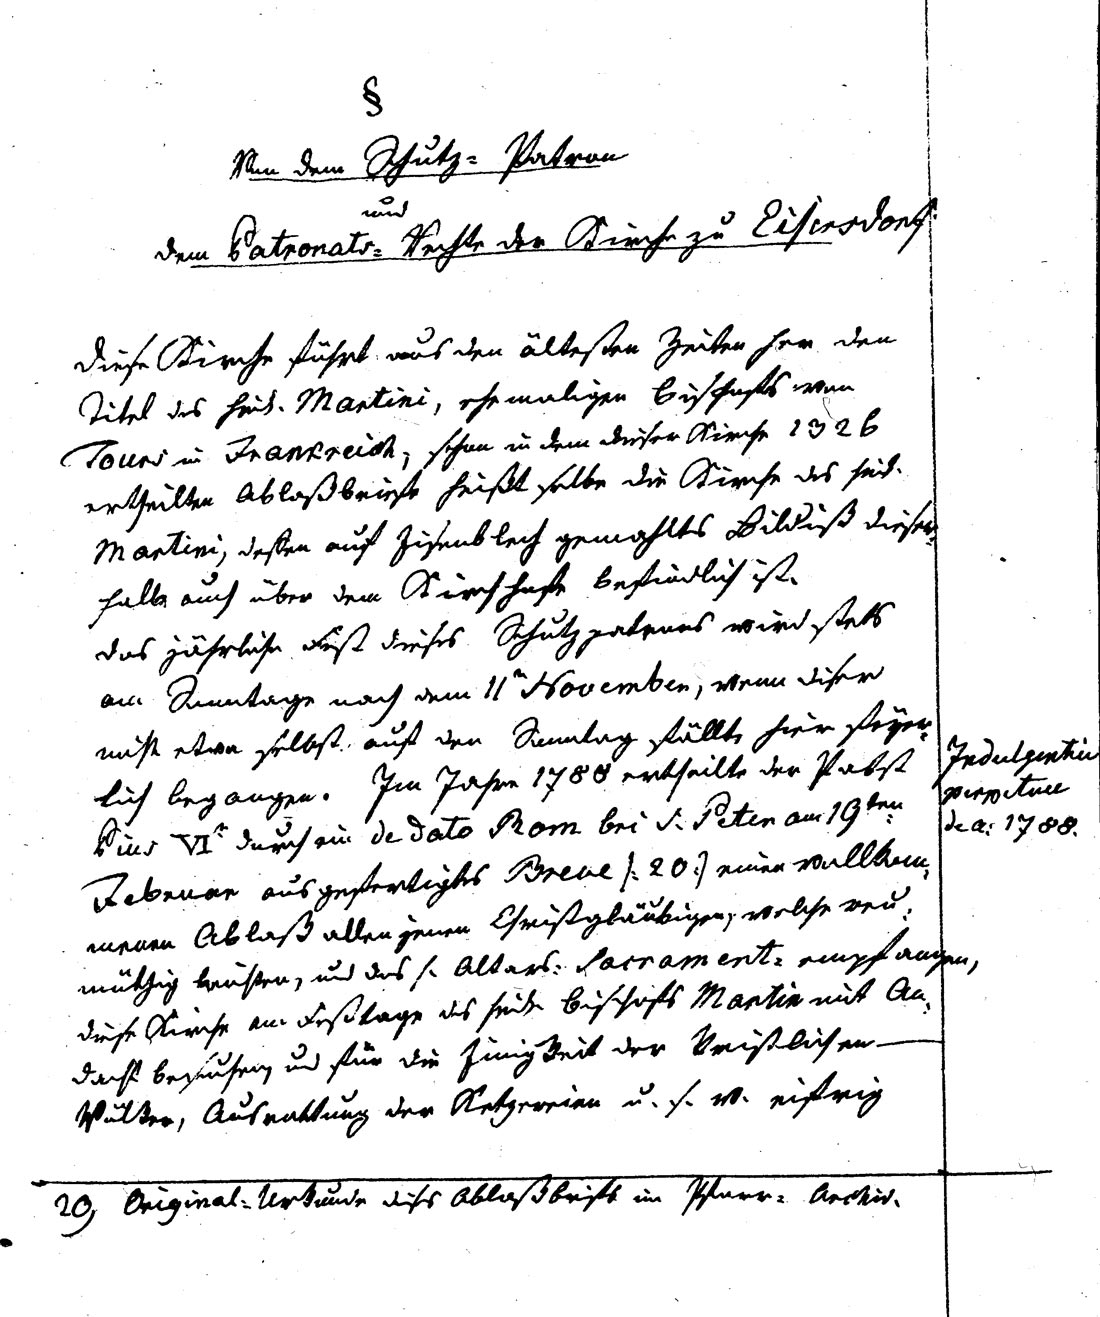 §
Von dem Schutz= Patron
und
dem Patronats= Rechte der Kirche zu Eisersdorf.
Diese Kirche führt aus den ältesten Zeiten her den
Titel des heil. Martini, ehemaligen Bischofs von
Tours in Frankreich, schon in dem dieser Kirche 1326
ertheilten Ablaßbriefe heißt selbe die Kirche des heil.
Martini, dessen auf Eisenblech gemahltes Bildniß dieser=
halb auch über dem Kirchhofe befindlich ist.
Das jährliche Fest dieses Schutzpatrons wird stets
am Sonntage nach dem 11n November, wenn dieser
nicht etwa selbst auf den Sonntag fällt, hier feyer=
lich begangen. Im Jahre 1788 ertheilte der Pabst
Pius VIt durch ein de dato Rom bei S. Peter am 19ten
Februar ausgefertigtes Breve /: 20 :/ einen vollkom=
menen Ablaß allen jenen Christgläubigen, welche reu=
müthig beichten, und das h. Altars= Sacrament= empfangen,
diese Kirche am Festtage des heil. Bischofs Martin mit An=
dacht besuchen, und für die Einigkeit der Christlichen
Völker, Ausrottung der Ketzereien u. s. w. eifrig
Indulgentia
perpetuae
de a: 1788.
20, Original=Urkunde dieses Ablaßbriefs im Pfarr= Archiv.